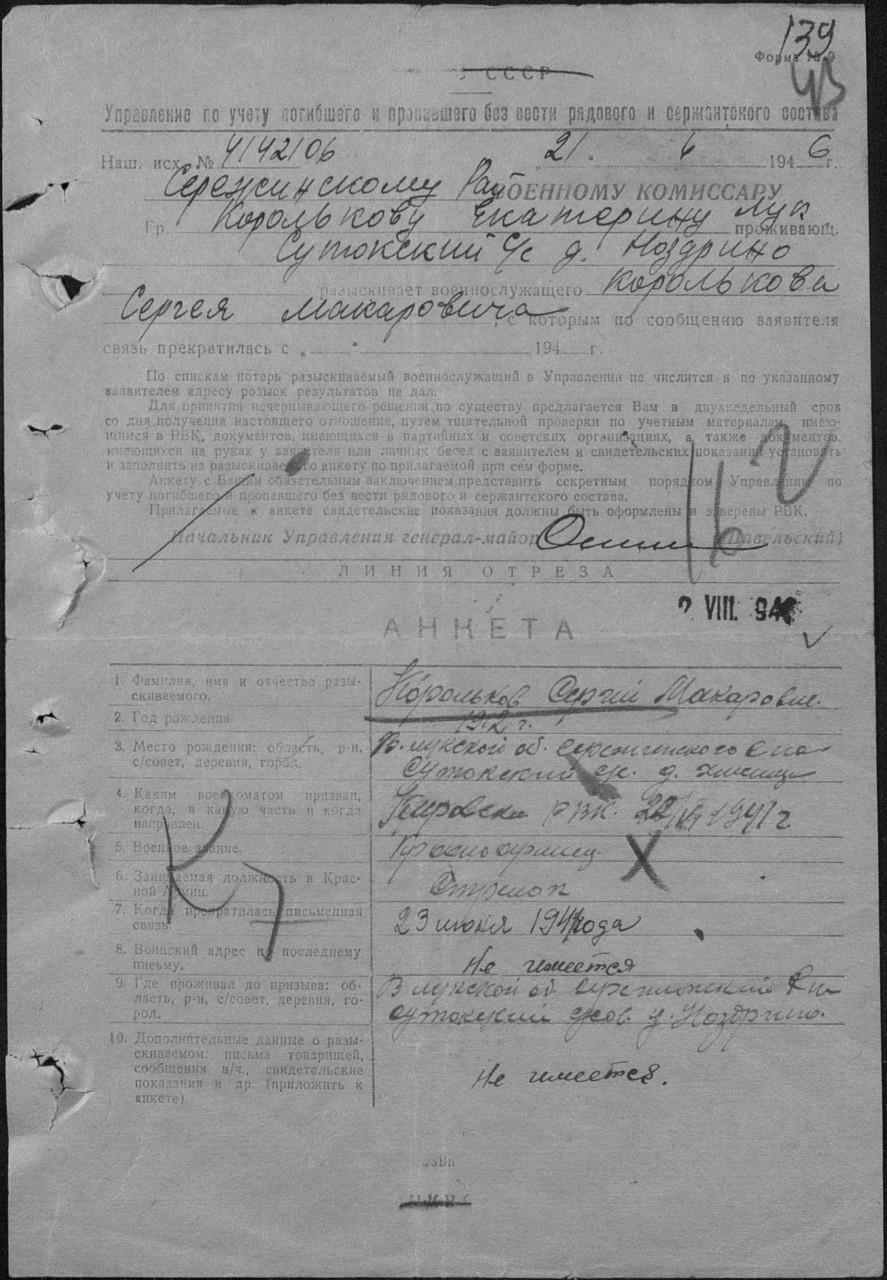 139
Форма № 9
43
СССР
Управление по учету погибшего и пропавшего без вести рядового и сержантского состава
Наш. исх. № 4142106 „21.“ 6 1946 г.
Сережинскому Рай ВОЕННОМУ КОМИССАРУ
Гр. Королькову Екатерину Лук проживающ.
Сутокский с/с д. Ноздрино
разыскивает военнослужащего Королькова
Сергея Макаровича, с которым по сообщению заявителя
связь прекратилась с „ “ 194 г.
По спискам потерь разыскиваемый военнослужащий в Управлении не числится и по указанному
заявителем адресу розыск результатов не дал.
Для принятия исчерпывающего решения по существу предлагается Вам в двухнедельный срок
со дня получения настоящего отношения, путем тщательной проверки по учетным материалам, имею-
щимся в РВК, документов, имеющихся в партийных и советских организациях, а также документов,
имеющихся на руках у заявителя или личных бесед с заявителем и свидетельских показаний установить
и заполнить на разыскиваемого анкету по прилагаемой при сем форме.
Анкету с Вашим обязательным заключением представить секретным порядком Управлению по
учету погибшего и пропавшего без вести рядового и сержантского состава.
Прилагаемые к анкете свидетельские показания должны быть оформлены и заверены РВК.
Начальник Управления генерал-майор
ЛИНИЯ ОТРЕЗА
2 VIII. 946
АНКЕТА
1. Фамилия, имя и отчество разы-
скиваемого.
Корольков Сергей Макарович
2. Год рождения
3. Место рождения: область, р-н,
с/совет, деревня, город.
В. лукской об. Сережинского
Сутокский с/с. д.
4. Каким военкоматом призван,
когда, в какую часть и когда
направлен.
РВК. 22/VI 1941 г
5. Военное звание.
Красноармеец
6. Занимаемая должность в Крас-
ной Армии.
Стрелок
7. Когда прекратилась письменная
связь.
23 июня 1941 года
8. Воинский адрес по последнему
письму.
Не имеется
9. Где проживал до призыва: об-
ласть, р-н, с/совет, деревня, го-
род.
В лукской об
Сутокский с/сов. д. Ноздрино.
10. Дополнительные данные о разы-
скиваемом: письма товарищей,
сообщения в/ч, свидетельские
показания и др. (приложить к
анкете)
Не имеется.